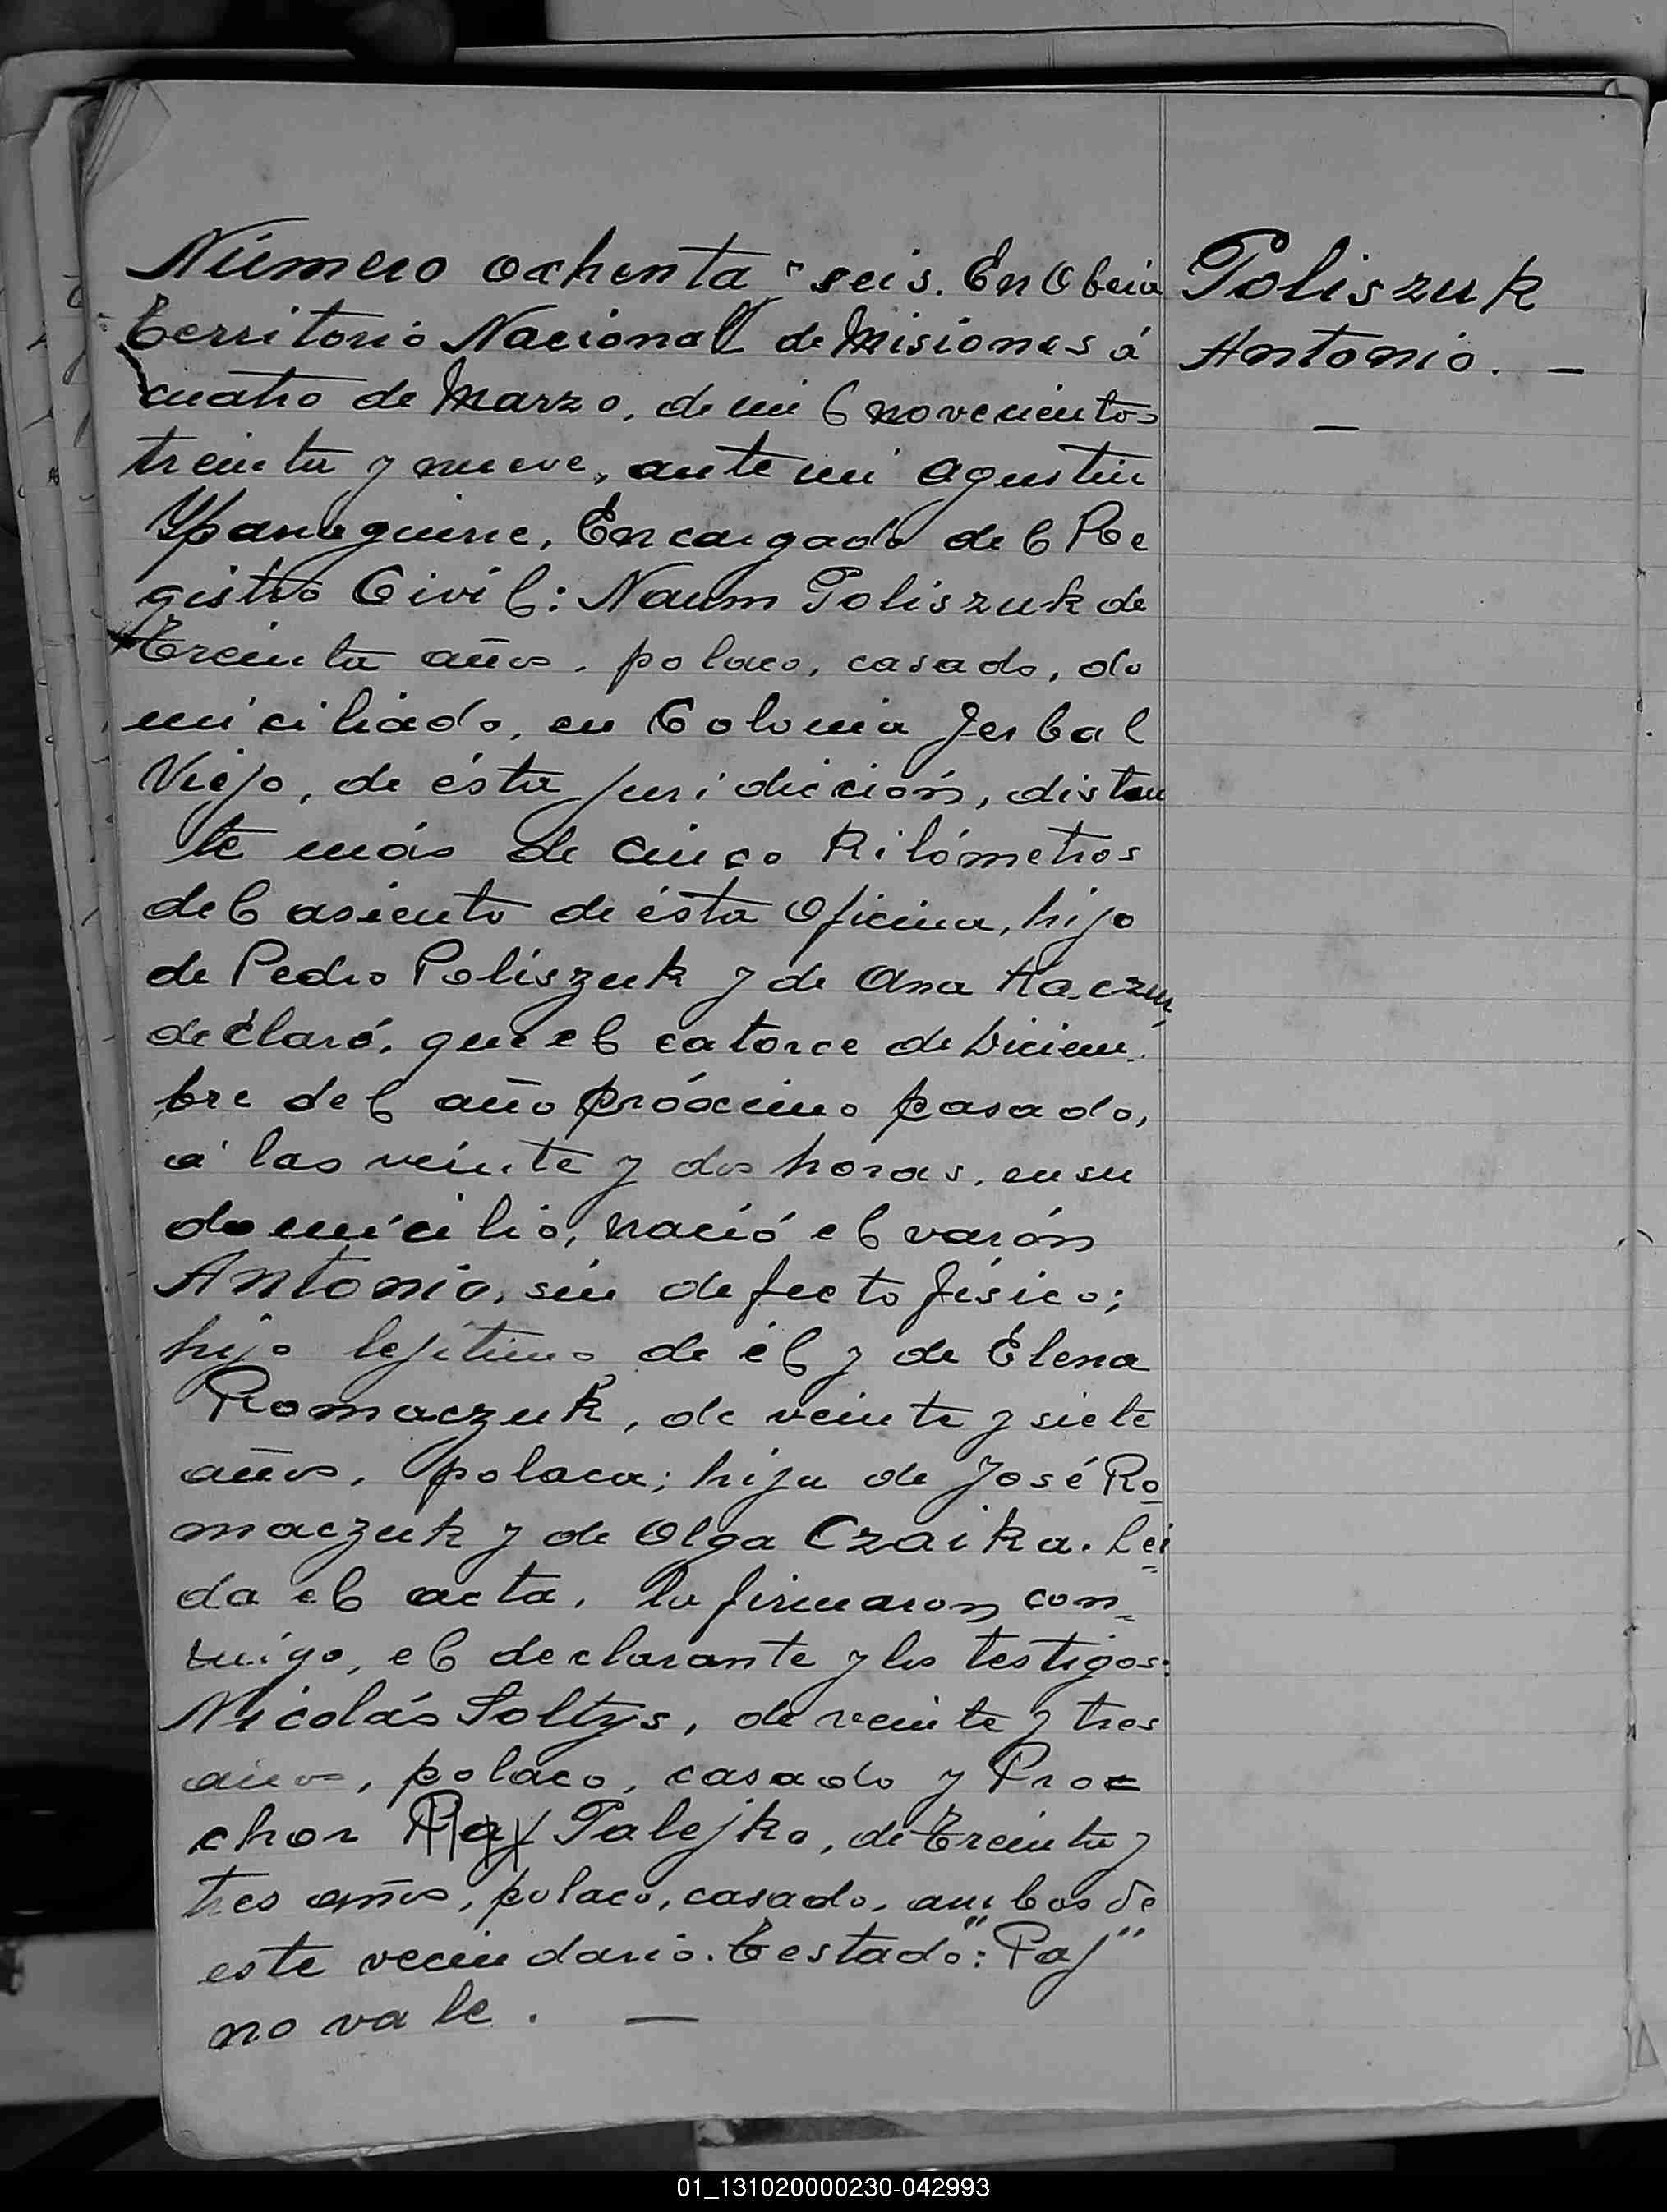 Número ochenta y seis. En Oberá
Territorio Nacional de Misiones á
cuatro de Marzo, de mil novecientos
treinta y nueve, ante mi Agustin
Encargado del Re
gistro Civil: Naum Poliszuk de
treinta años, polaco, casado, do
miciliado, en Colonia Jerbal
Viejo, de ésta juridicción, distan
te más de cinco kilómetros
del asiento de ésta Oficina, hijo
de Pedro Poliszuk y de Ana
declaró, que el catorce de Diciem
bre del año próximo pasado,
á las veinte y dos horas, en su
domicilio, nació el varón
Antonio, sin defecto físico;
hijo lejítimo de él y de Elena
Romaczuk, de veinte y siete
años, polaca; hija de José Ro
maczuk y de Olga Czaika. Lei
da el acta, la firmaron con
migo, el declarante y los testigos:
Nicolás Soltys, de veinte y tres
años, polaco, casado y Pro=
chor Paj Palejko, de treinta y
tres años, polaco, casado, ambos de
este vecindario. Testado: "Paj"
no vale. —
Poliszuk
Antonio. —
—
01_131020000230-042993